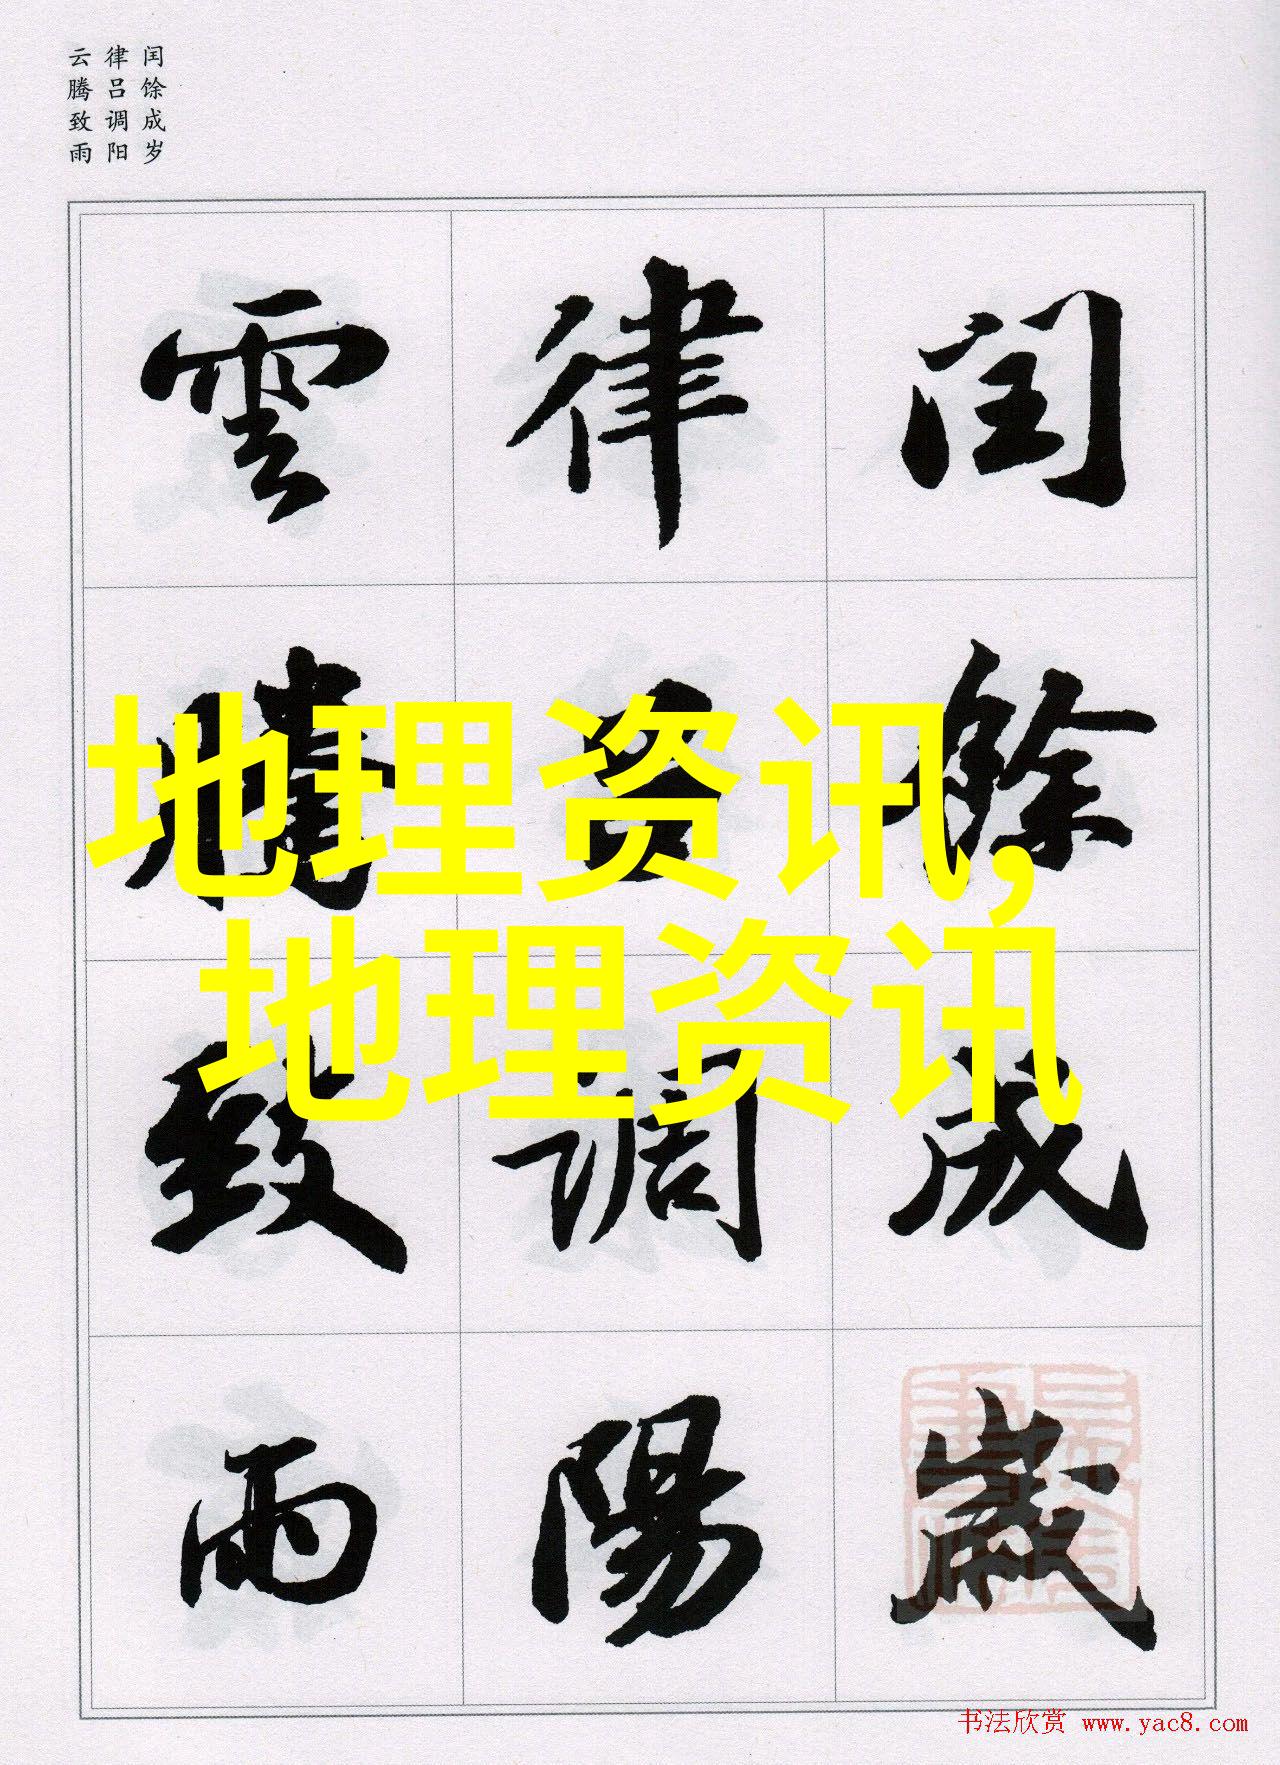 闰馀成岁
律吕调阳
云腾致雨
閏餘成歲
律吕調陽
雲騰致雨
地理资讯,
地理资讯
书法欣赏 www.yac8.com